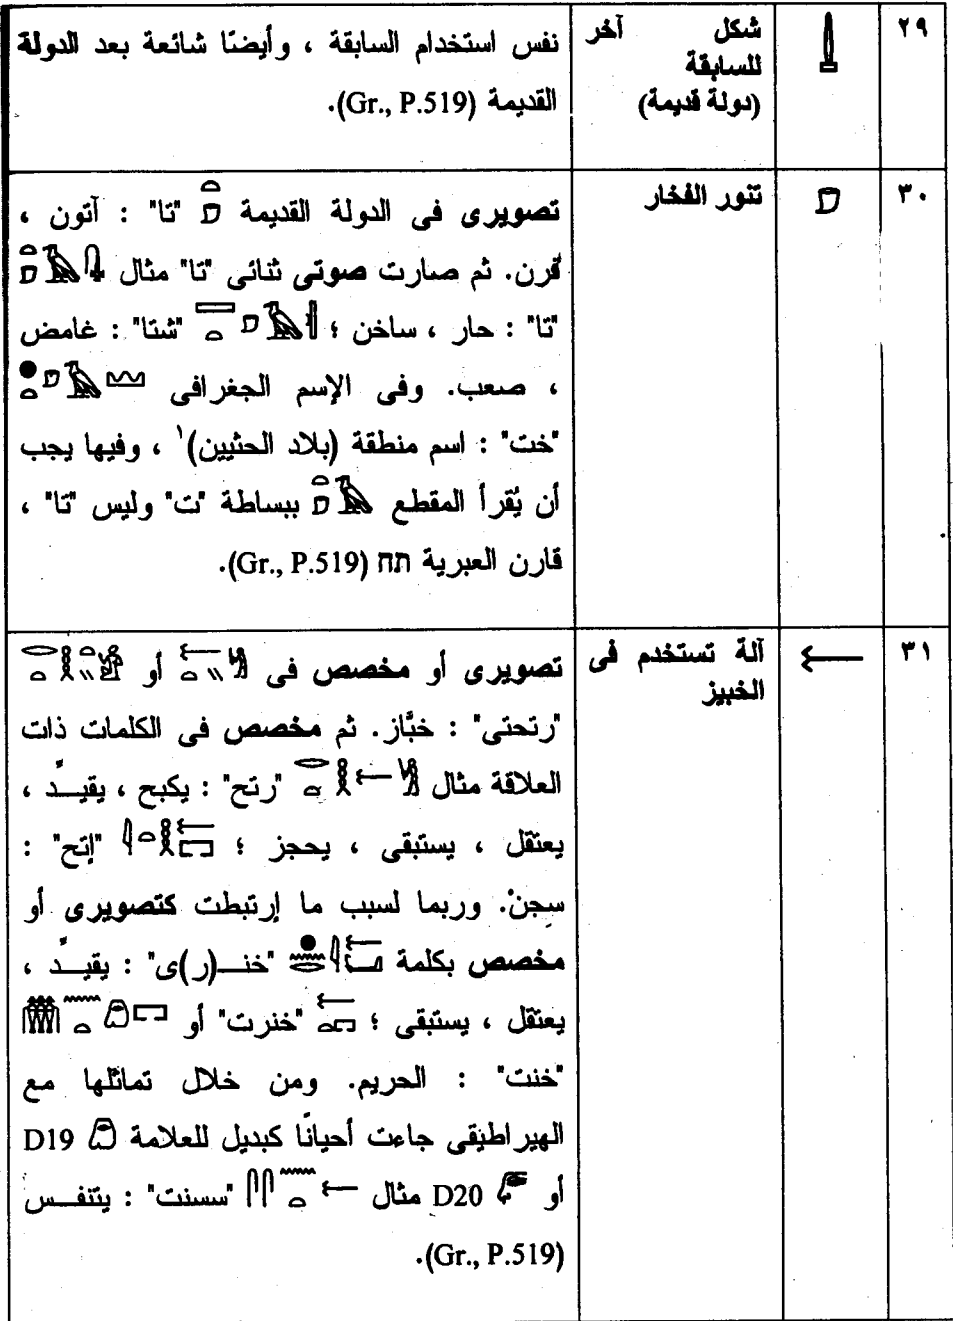 ٢٩
شكل آخر
للسابقة
(دولة قديمة)
نفس استخدام السابقة ، وأيضًا شائعة بعد الدولة
القديمة (Gr., P.519).
٣٠
تنور الفخار
تصويرى فى الدولة القديمة "تا" : آتون ،
قرن. ثم صارت صوتى ثنائى "تا" مثال
"تا" : حار ، ساخن ؛ "شتا" : غامض
، صعب. وفى الإسم الجغرافى
"خت" : اسم منطقة (بلاد الحثيين)١ ، وفيها يجب
أن يُقرأ المقطع ببساطة "ت" وليس "تا" ،
قارن العبرية חת (Gr., P.519).
٣١
آلة تستخدم فى
الخبيز
تصويرى أو مخصص فى أو
"رتحتى" : خبَّاز. ثم مخصص فى الكلمات ذات
العلاقة مثال "رتح" : يكبح ، يقيـــد ،
يعتقل ، يستبقى ، يحجز ؛ "إتح" :
سجن. وربما لسبب ما إرتبطت كتصويرى أو
مخصص بكلمة "خنــ(ر)ى" : يقيــد ،
يعتقل ، يستبقى ؛ "خنرت" أو
"خنت" : الحريم. ومن خلال تماثلها مع
الهيراطيقى جاءت أحيانًا كبديل للعلامة D19
أو D20 مثال "سسنت" : يتنفــس
(Gr., P.519).